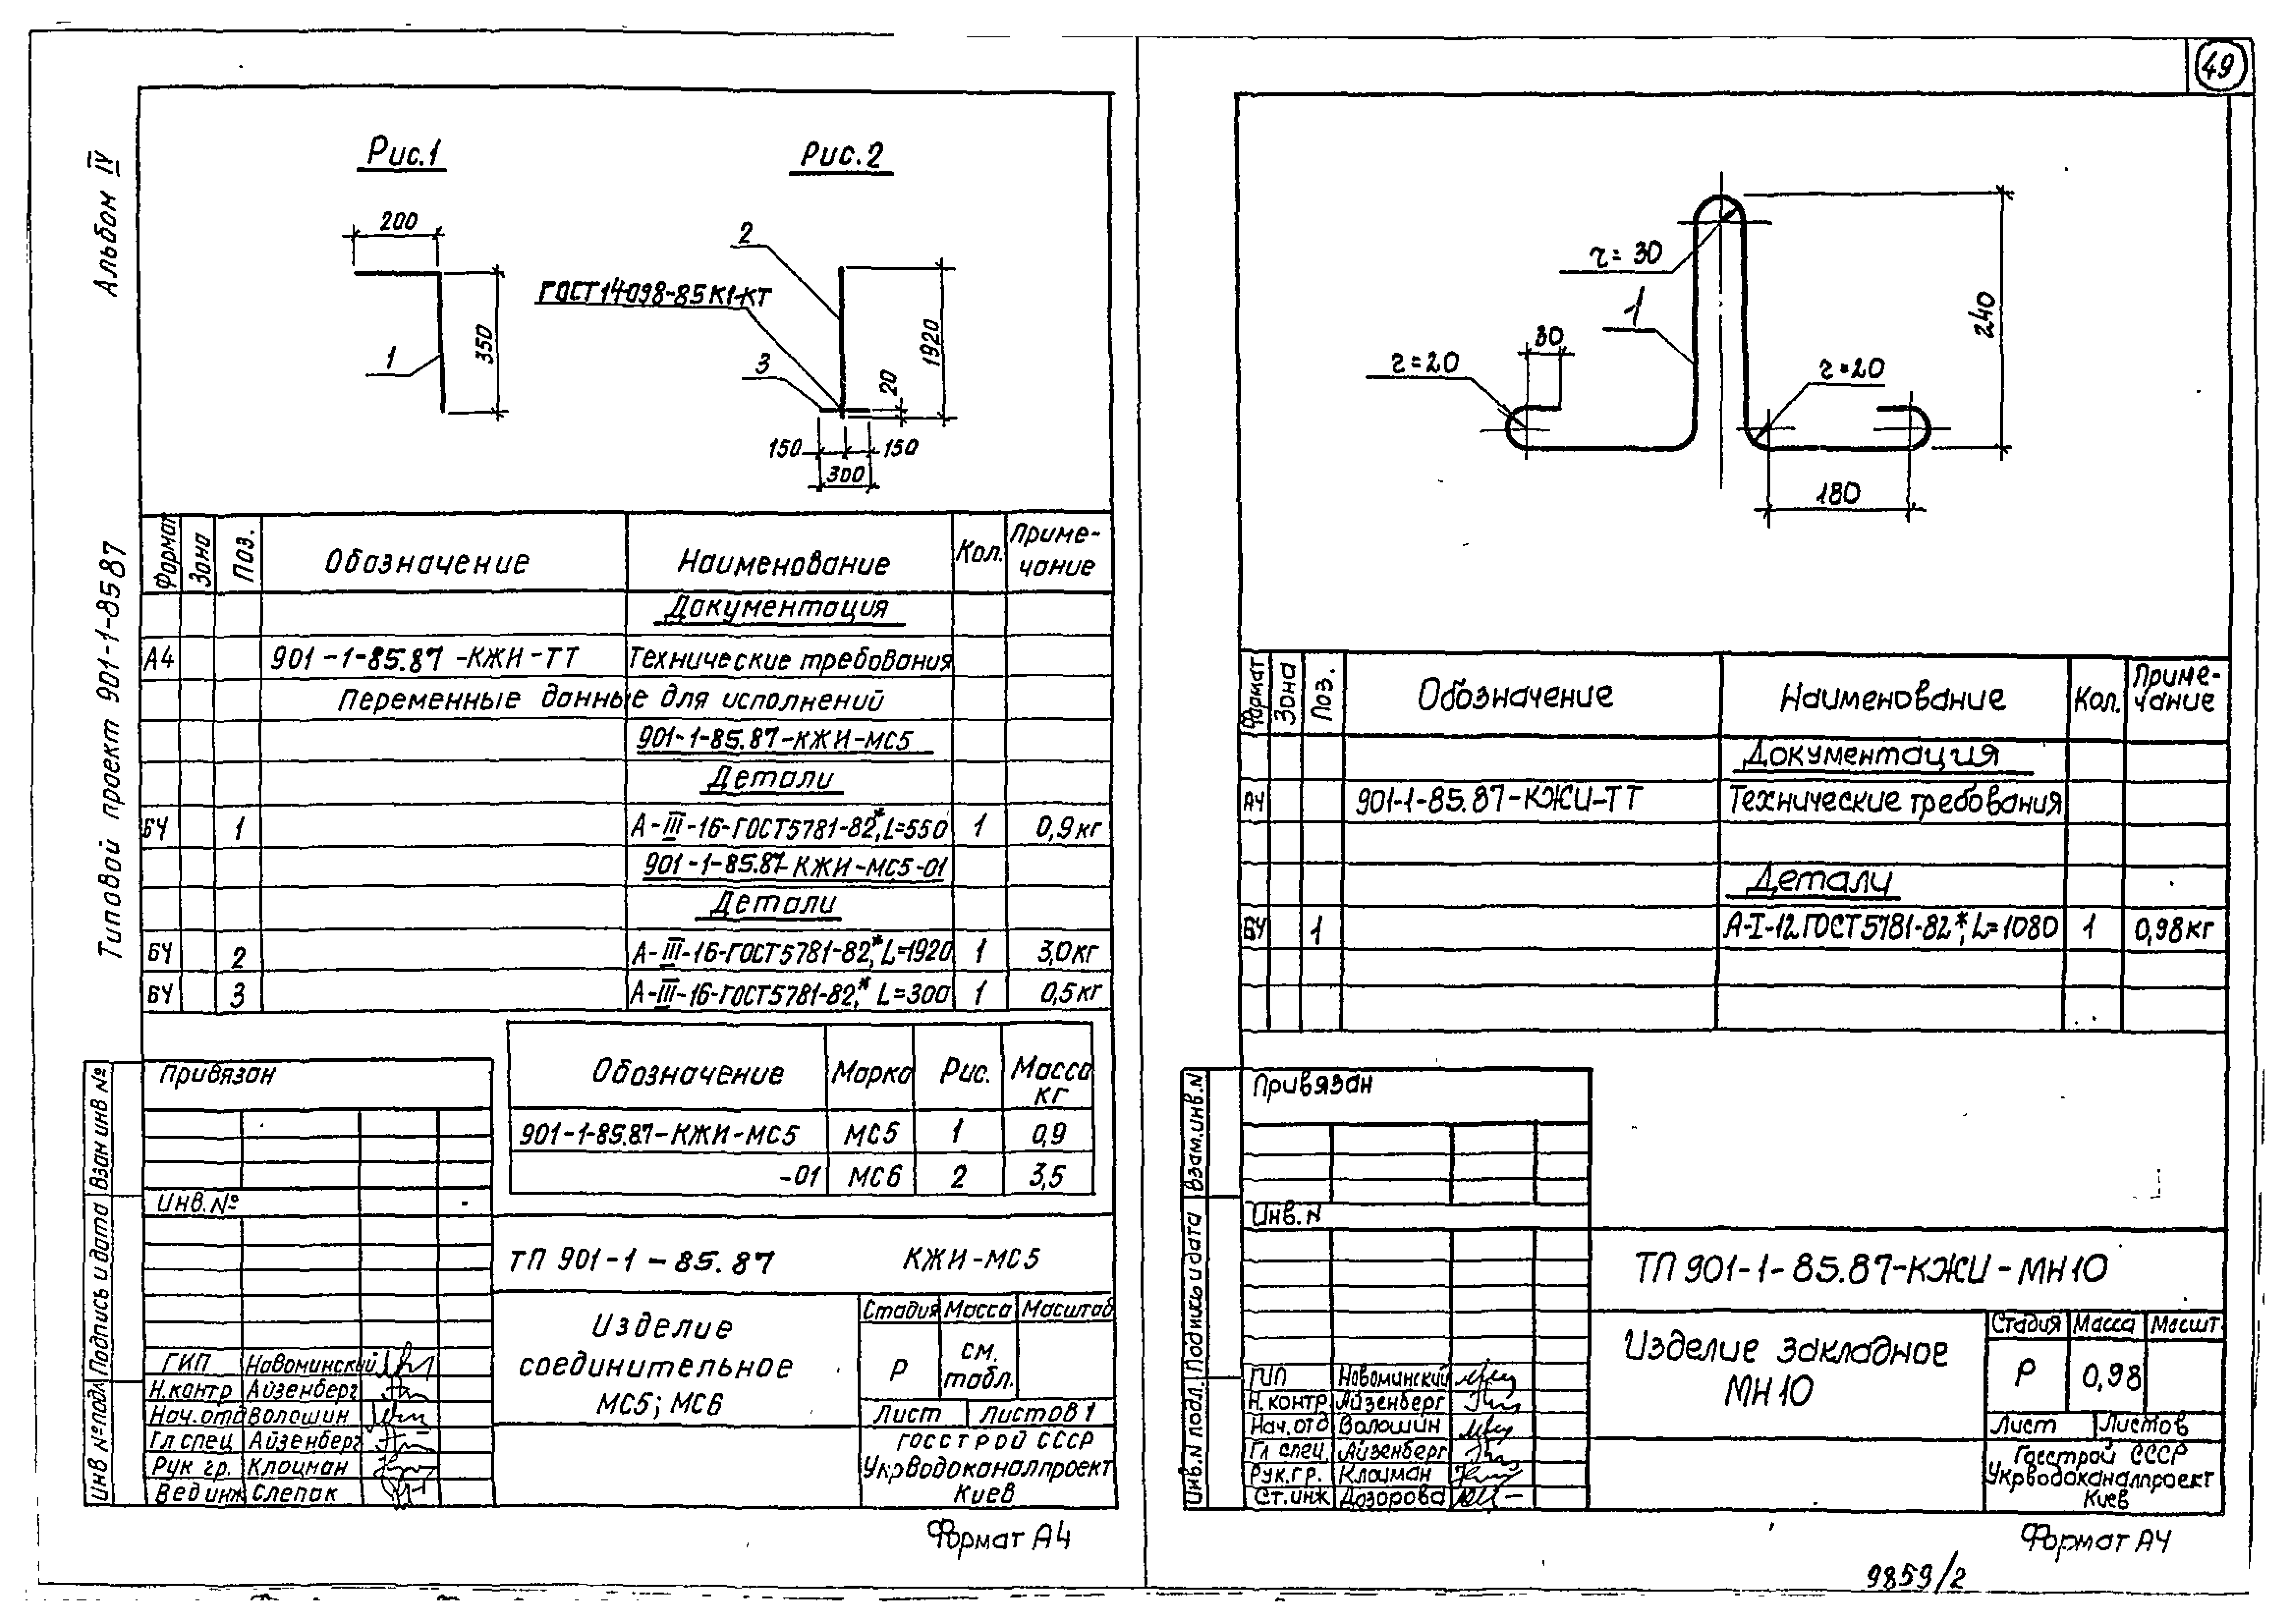 49
Альбом IV
Типовой проект 901-1-85 87
Рис.1
Рис.2
200
350
1
2
ГОСТ14098-85К1-КТ
3
1920
20
150
150
300
Формат Зона Поз. Обозначение Наименование Кол. Примечание
Документация
А4 901-1-85.87-КЖИ-ТТ Технические требования
Переменные данные для исполнений
901-1-85.87-КЖИ-МС5
Детали
БЧ 1 А-III-16-ГОСТ5781-82*, L=550 1 0,9кг
901-1-85.87-КЖИ-МС5-01
Детали
БЧ 2 А-III-16-ГОСТ5781-82*, L=1920 1 3,0кг
БЧ 3 А-III-16-ГОСТ5781-82,* L=300 1 0,5кг
Обозначение Марка Рис. Масса кг
901-1-85.87-КЖИ-МС5 МС5 1 0,9
-01 МС6 2 3,5
Привязан
Инв. №
Взам инв №
Подпись и дата
Инв № подл
ТП 901-1-85.87 КЖИ-МС5
Изделие
соединительное
МС5; МС6
Стадия Масса Масштаб
Р см. табл.
Лист Листов 1
Госстрой СССР
Укрводоканалпроект
Киев
ГИП Новоминский
Н.контр Айзенберг
Нач.отд Волошин
Гл спец Айзенберг
Рук гр. Клоцман
Вед инж Слепак
Формат А4
r=30
1
30
r=20
r=20
240
180
Формат Зона Поз. Обозначение Наименование Кол. Примечание
Документация
А4 901-1-85.87-КЖИ-ТТ Технические требования
Детали
БЧ 1 А-I-12 ГОСТ5781-82*, L=1080 1 0,98кг
Привязан
Инв. N
Взам.инв.N
Подпись и дата
Инв.N подл.
ТП 901-1-85.87-КЖИ-МН10
Изделие закладное
МН10
Стадия Масса Масшт.
Р 0,98
Лист Листов
Госстрой СССР
Укрводоканалпроект
Киев
ГИП Новоминский
Н.контр Айзенберг
Нач.отд Волошин
Гл спец. Айзенберг
Рук.гр. Клоцман
Ст.инж Дозорова
Формат А4
9859/2